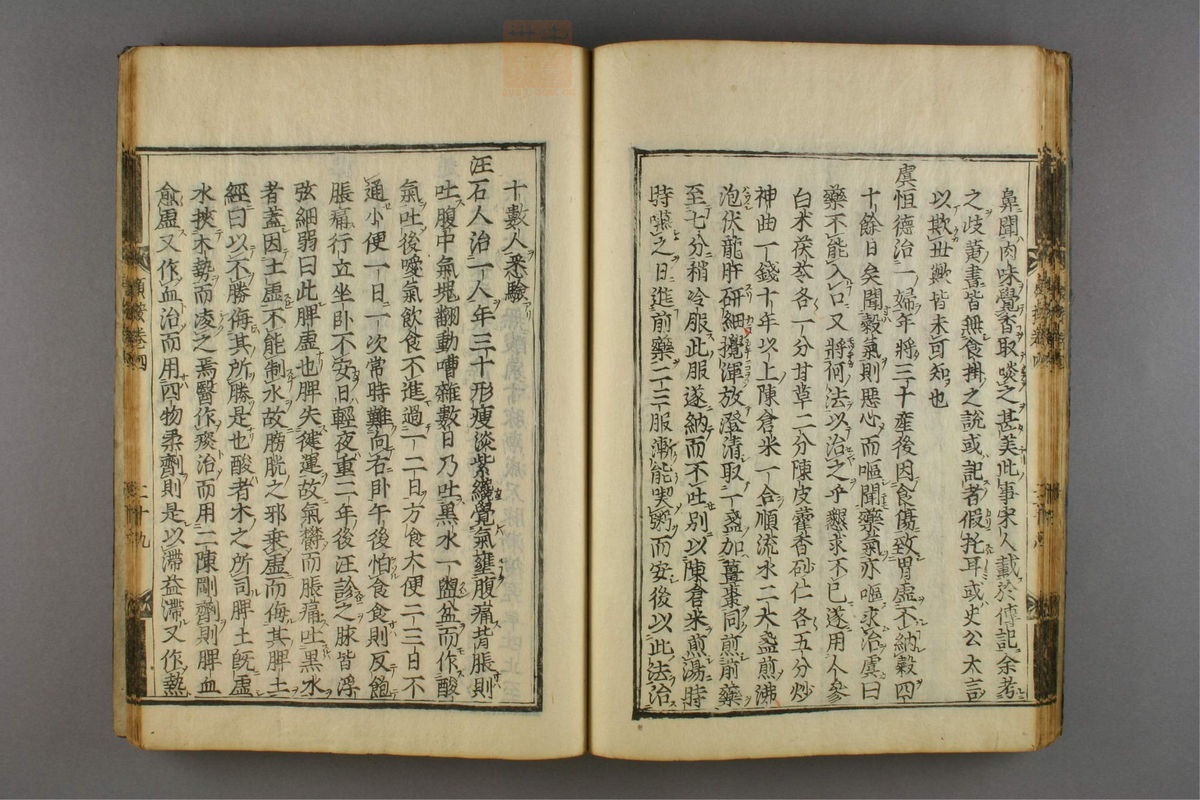 鼻聞肉味覺香取啖之甚美此事宋人載於傳記余考
之歧黄書皆無食掛之說或記者假托耳或史公大言
以欺世歟皆未可知也
虞恒德治一婦年將三十產後因食傷致胃虛不納穀四
十餘日矣聞穀氣則惡心而嘔聞藥氣亦嘔求治虞曰
藥不能入口又將何法以治之乎懇求不已遂用人參
白朮茯苓各一分甘草二分陳皮藿香砂仁各五分炒
神曲一錢十年以上陳倉米一合順流水二大盞煎沸
泡伏龍肝研細攪渾放澄清取一盞加薑棗同煎前藥
至七分稍冷服此服遂納而不吐別以陳倉米煎湯時
時嚥之日進前藥二三服漸能喫粥而安後以此法治
十數人悉驗
汪石人治一人年三十形瘦淡紫纔覺氣壅腹痛背脹則
吐腹中氣塊翻動嘈雜數日乃吐黒水一盥盆而作酸
氣吐後噯氣飲食不進過一二日方食大便二三日不
通小便一日一次常時難向右卧午後怕食食則反飽
脹痛行立坐卧不安日輕夜重二年後汪診之脉皆浮
弦細弱曰此脾虛也脾失健運故氣欝而脹痛吐黒水
者蓋因土虛不能制水故膀胱之邪乗虛而侮其脾土
經曰以不勝侮其所勝是也酸者木之所司脾土旣虛
水挾木勢而凌之焉醫作痰治而用二陳剛劑則脾血
愈虛又作血治而用四物柔劑則是以滞益滞又作熱
類案卷四
二十九